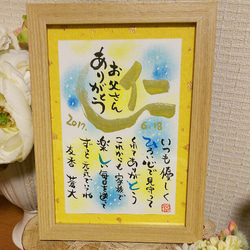 仁
お父さん
ありがとう
2017. 6.18
いつも優しく
ひろい心で見守って
くれてありがとう
これからも家族で
楽しい毎日を過ごして
ずっと元気でいてね